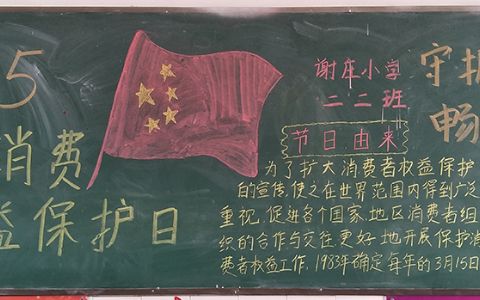 5
消费
益保护日
谢庄小学
二二班
守护
畅
节日由来
为了扩大消费者权益保护
的宣传,使之在世界范围内得到广泛
重视,促进各个国家地区消费者组
织的合作与交往更好地开展保护消
费者权益工作,1983年确定每年的3月15日